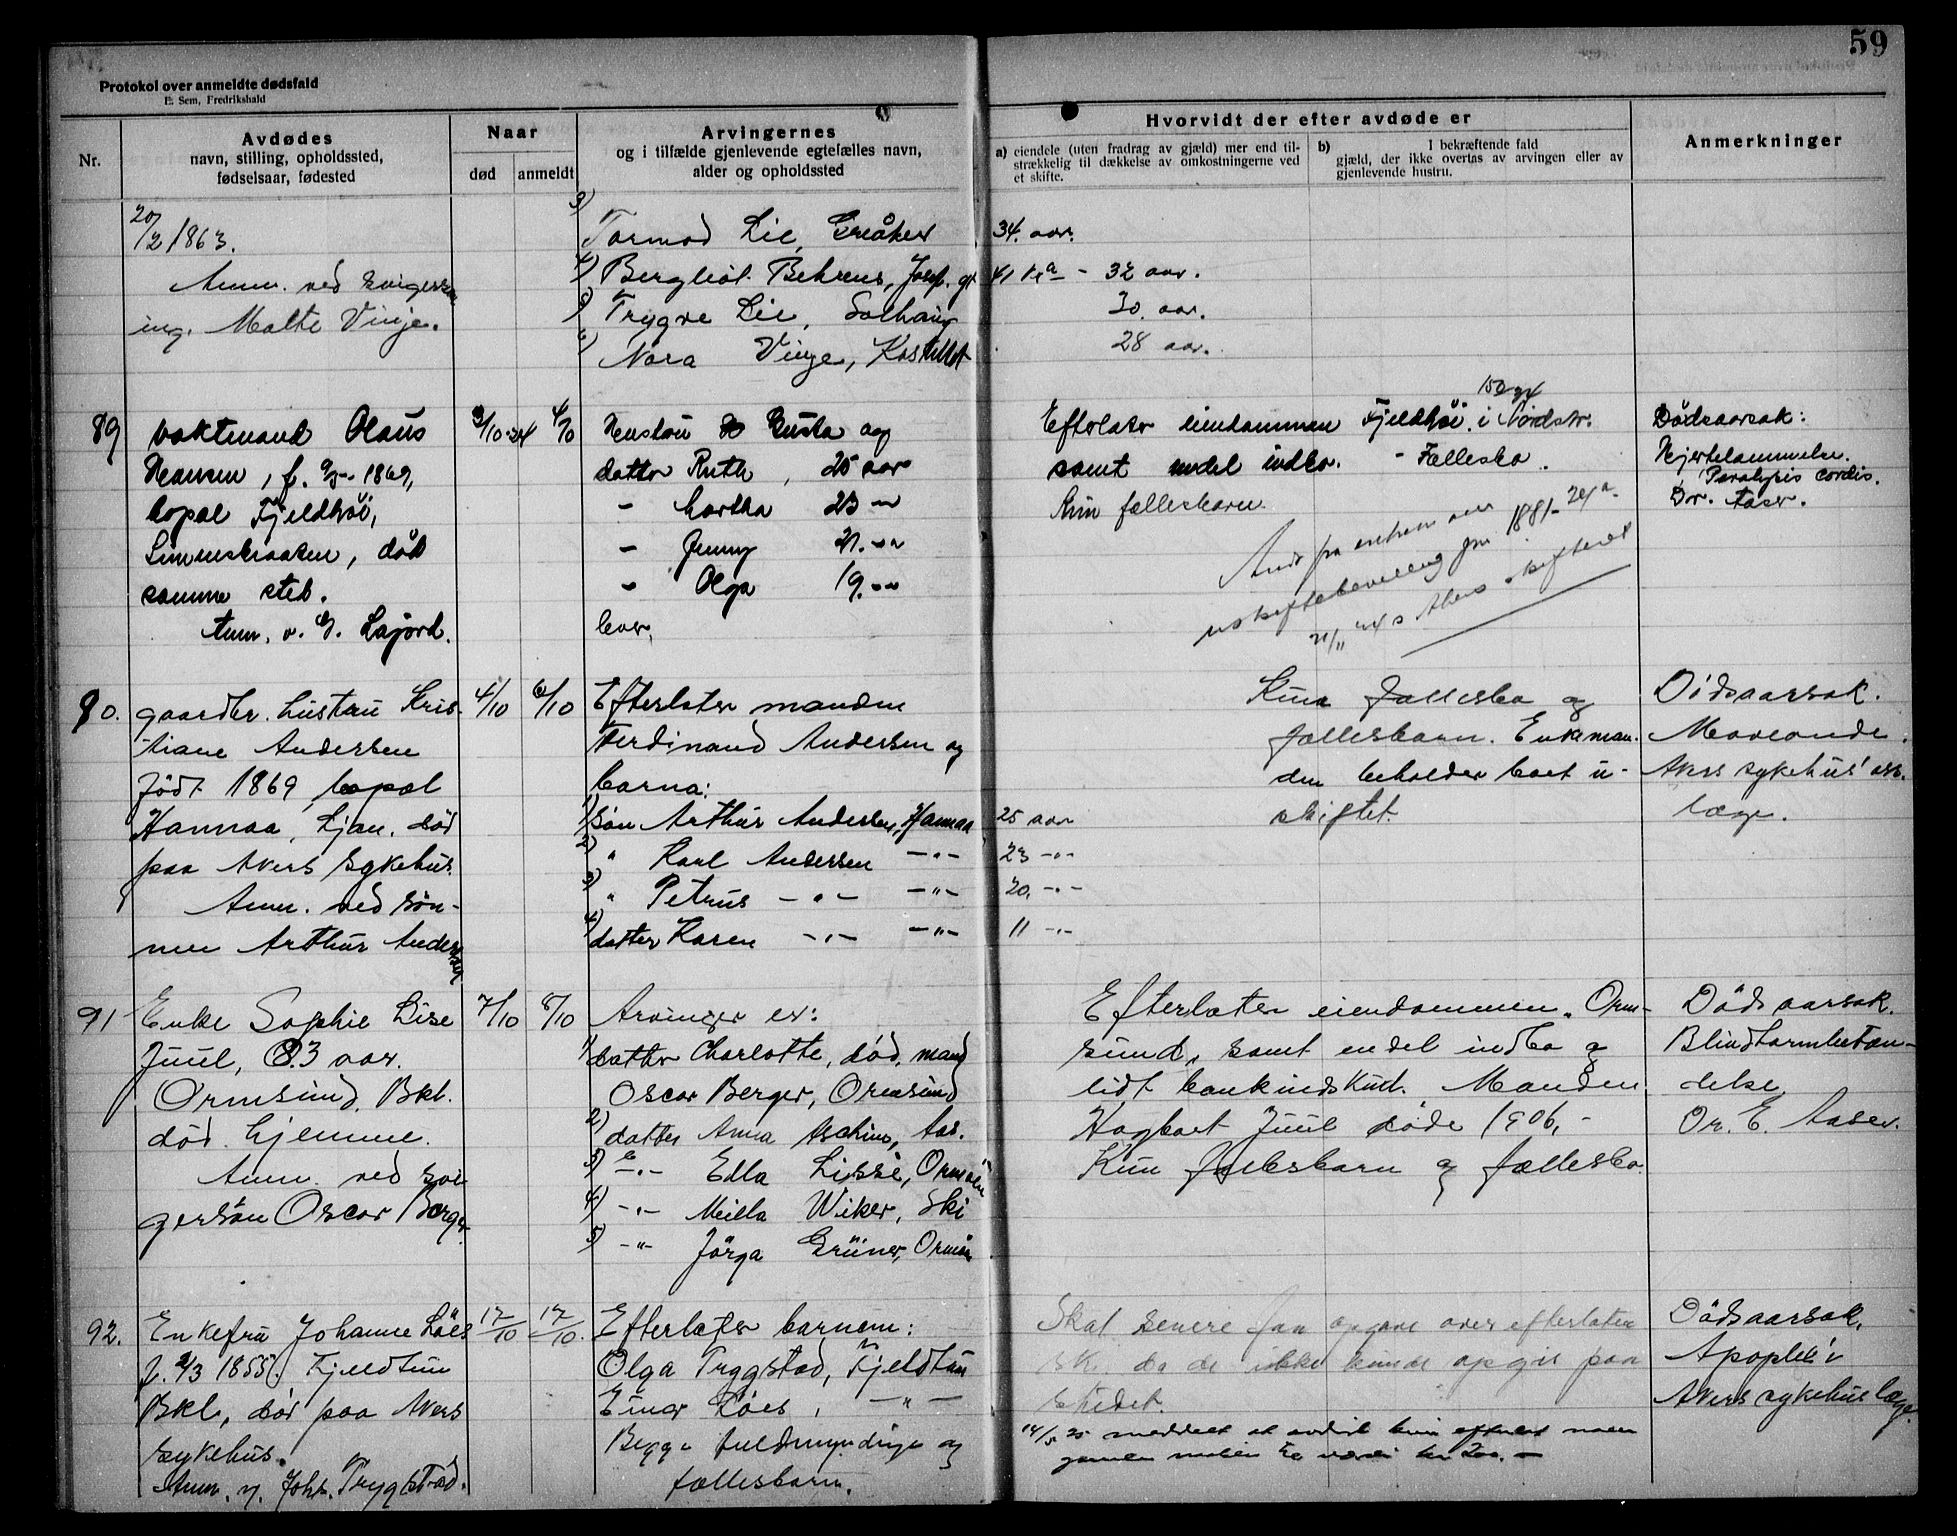 59
Protokol over anmeldte dødsfald
E. Sem, Fredrikshald
Nr.
Avdødes
navn, stilling, opholdssted,
fødselsaar, fødested
Naar
død
anmeldt
Arvingernes
og i tilfælde gjenlevende egtefælles navn,
alder og opholdssted
Hvorvidt der efter avdøde er
a) eiendele (uten fradrag av gjæld) mer end til-
strækkelig til dækkelse av omkostningerne ved
et skifte.
b) I bekræftende fald
gjæld, der ikke overtas av arvingen eller av
gjenlevende hustru.
Anmerkninger
20/2 1863.
Anm. ved svigersøn
ing. Malte Vinje.
3) Tormod Lie, Greåker 34. aar.
4) Bergliot Behrens, Josef. gt 41 - 32 aar.
5) Trygve Lie, Solhaug 30. aar.
6) Nora Vinje, 28 aar.
89
Vaktmand Olaus
Hansen, f. 1869,
bopæl Fjeldhøi,
død
samme sted.
Anm. v. Lajord.
3/10-24
4/10
Hustru Gusta og
datter Ruth, 25 aar
- Martha 23 -"-
- Jenny 21. -"-
- Olga 19. -"-
Efterlater eiendommen Fjeldhøi i Nordstr.
samt endel indbo. - Fællesbo.
Kun fællesbarn.
1881-24
uskiftebevilling fra
Akers skifteret
Dødsaarsak:
Hjertelammelse.
Paralysis cordis.
Dr. Aaser.
90.
gaardbr. hustru Kris-
tiane Andersen
født 1869, bopæl
Hannaa, Ljan, død
paa Akers sykehus.
Anm. ved søn-
nen Arthur Andersen
4/10
6/10
Efterlater manden
Ferdinand Andersen og
barna:
1) Søn Arthur Andersen, Hannaa 25 aar
2) " Karl Andersen -"- 23 -"-
3) " Petrus -"- -"- 20. -"-
4) datter Karen -"- -"- 11 -"-
Kun fællesbo og
fællesbarn. Enkeman-
den beholder boet u-
skiftet.
Dødsaarsak.
Maveonde.
Akers sykehus' ass.
læge.
91
Enke Sophie Lise
Juul, 83 aar.
Ormsund, Bkl.
død hjemme.
Anm. ved svi-
gersøn Oscar Berger
7/10
8/10
Arvinger er:
1) datter Charlotte, død, mand
Oscar Berger, Ormsund
2) datter Anna Aschim, Aas.
3) -"- Edla Lissie, Ormøen
4) -"- Milla Wiker, Ski
5) -"- Jörga Grüner, Ormøen
Efterlater eiendommen „Orm-
sund", samt endel indbo og
lidt bankindskud. Manden
Hagbart Juul døde 1906, -
Kun fællesbarn og fællesbo.
Dødsaarsak.
Blindtarmbetæn-
delse
Dr. E. Aaser.
92.
Enkefru Johanne Löes
f. 2/3 1855. Fjeldtun
Bkl., død paa Akers
sykehus.
Anm. v. Johs. Trygstad.
17/10
17/10.
Efterlater barnene:
Olga Tryggstad, Fjeldtun
Einar Löes, -"-
Begge fuldmyndige og
fællesbarn.
Skal senere faa opgave over efterlaten
sk. da de ikke kunde opgis paa
stedet.
14/5 25 meddelt at avdøde kun efterlot noen
gamle møbler til værdi kr 200. -
Dødsaarsak.
Apoplexi
Akers sykehus læge.